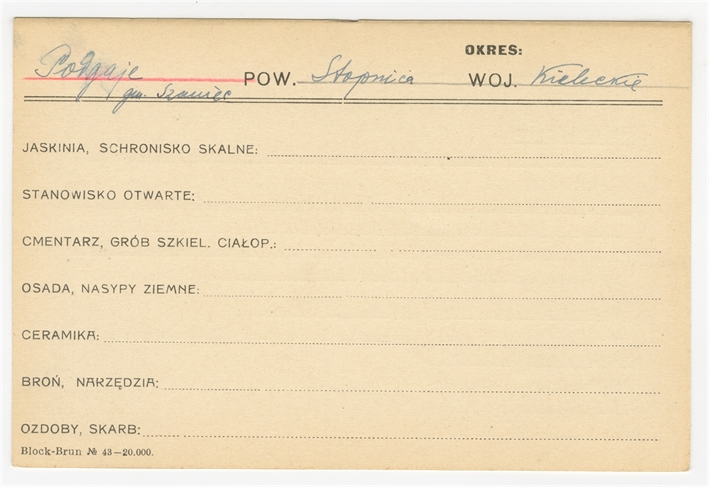 OKRES:
Podgaje POW. Stopnica WOJ. Kieleckie
gm. Szaniec
JASKINIA, SCHRONISKO SKALNE:
STANOWISKO OTWARTE:
CMENTARZ, GRÓB SZKIEL. CIAŁOP.:
OSADA, NASYPY ZIEMNE:
CERAMIKA:
BROŃ, NARZĘDZIA:
OZDOBY, SKARB:
Block-Brun № 43—20.000.